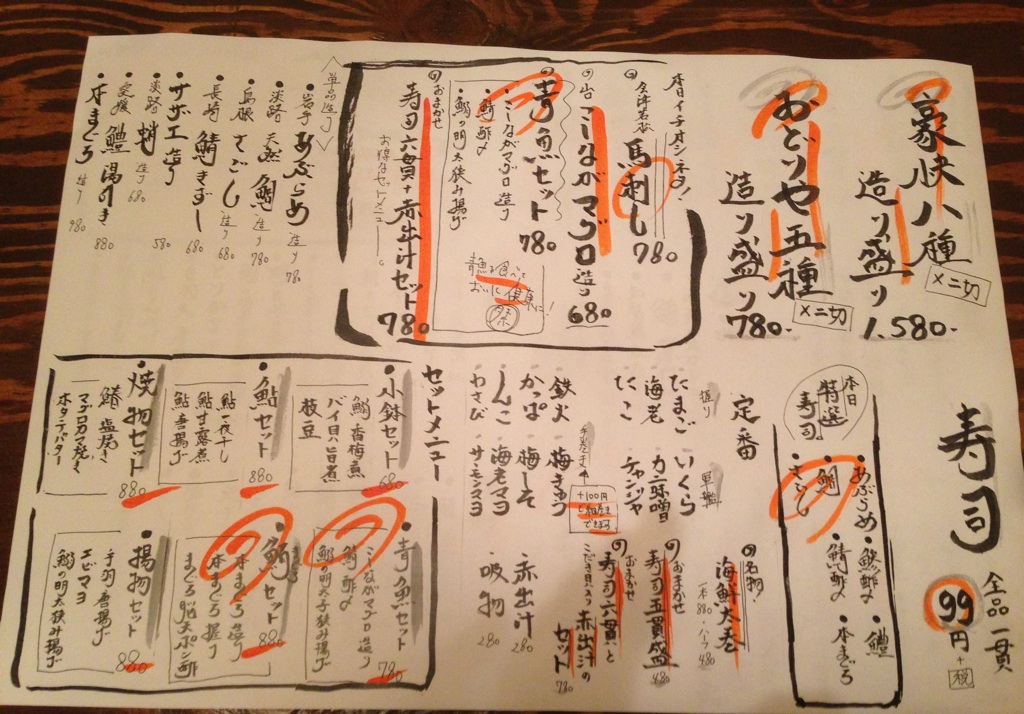 豪快八種
造り盛り
×二切
1.580-
おどりや五種
造り盛り
×二切
780-
本日イチオシネタ!
会津若松
馬刺し
780
こしながマグロ
造り
680
青魚セット
780
・こしながマグロ造り
・鯖酢〆
・鰯の明太挟み揚げ
青魚を食べて
おいしく健康に!
おまかせ
寿司六貫+赤出汁セット
780
お得なセットメニュー
単品造り
・岩手 あぶらめ 造り 780
・淡路 天然鯛 造り 780
・島根 さごし 造り 680
・長崎 鯖きずし 680
・サザエ造り 580
・淡路 蛸 造り 680
・愛媛 鱧湯引き 880
・本まぐろ 造り 980
寿司
全品一貫
99円+税
本日
特選
寿司
・あぶらめ
・鯵酢〆
・鱧
・鯛
・鯖酢〆
・本まぐろ
・さごし
定番
握り
軍艦
たまご
いくら
海老
カニ味噌
たこ
チャンジャ
鉄火
梅きゅう
かっぱ
梅しそ
しんこ
海老マヨ
わさび
サーモンマヨ
+100円
で細巻き
できます
名物
海鮮太巻
一本880・ハーフ480
おまかせ
寿司五貫盛
480
おまかせ
寿司六貫と
赤出汁の
セット
780
赤出汁
280
吸物
280
セットメニュー
・小鉢セット
680
鰯香梅煮
バイ貝旨煮
枝豆
・鮎セット
880
鮎一夜干し
鮎甘露煮
鮎唐揚げ
・焼物セット
880
鰆塩焼き
マグロカマ焼き
ホタテバター
・青魚セット
780
こしながマグロ造り
鯖酢〆
鰯の明太子挟み揚げ
・鮪セット
880
本まぐろ造り
本まぐろ握り
まぐろ脳天ポン酢
・揚物セット
880
手羽唐揚げ
エビマヨ
鰯の明太挟み揚げ